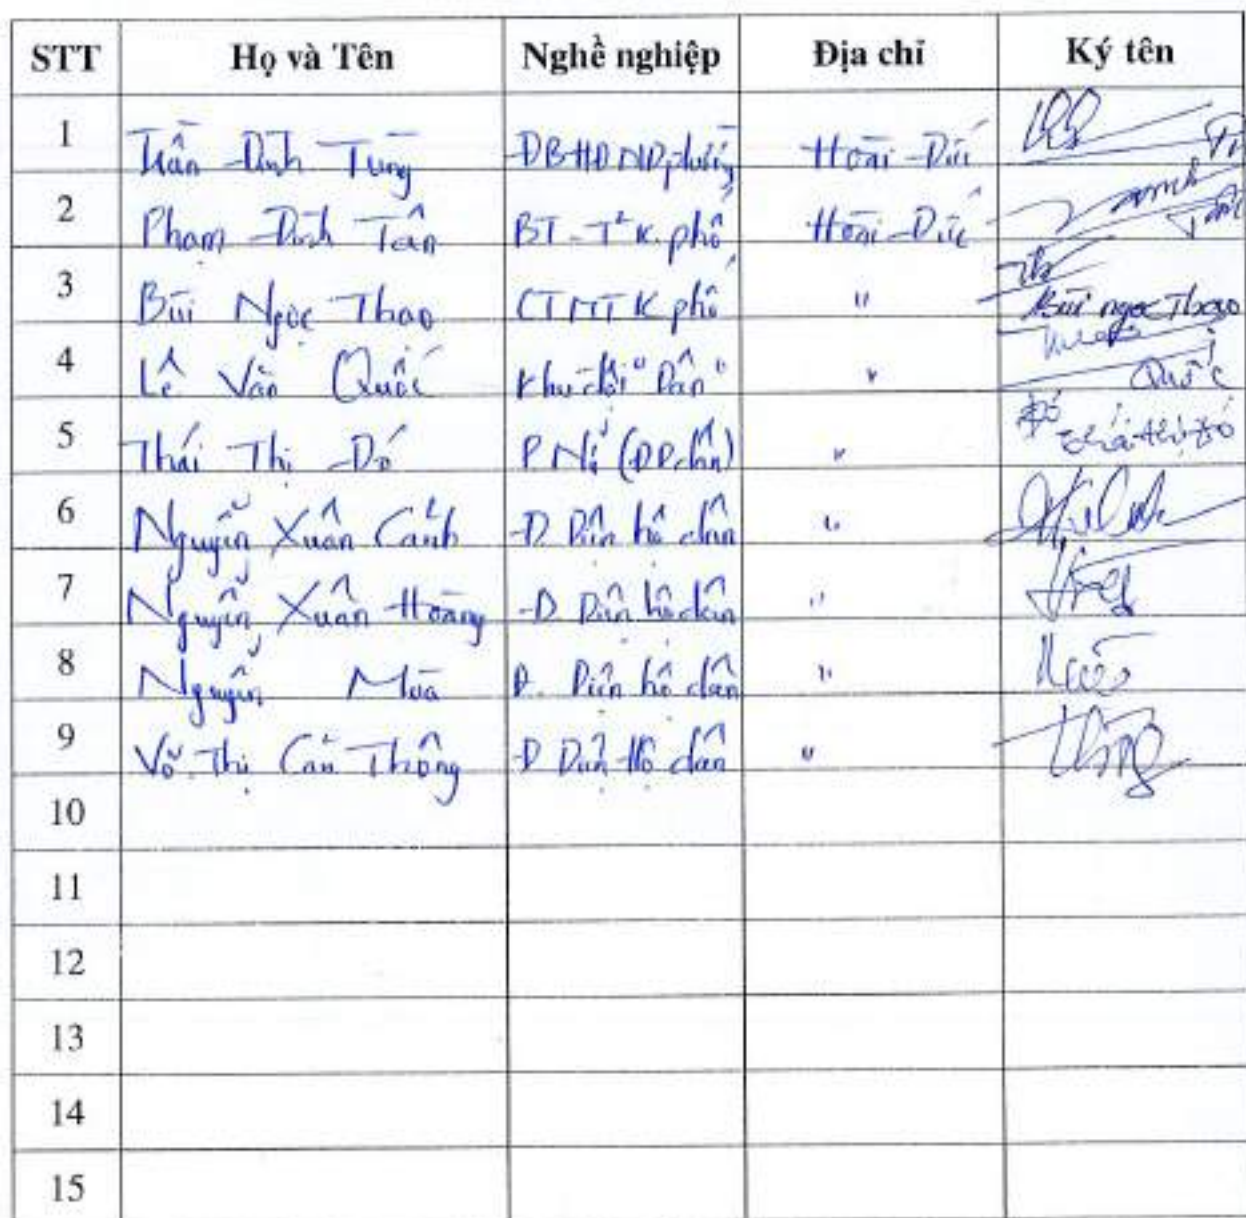 STT Họ và Tên Nghề nghiệp Địa chỉ Ký tên
1 Trần Đình Tùng ĐBHĐND phường Hoài Đức
2 Phạm Đình Tân BT-T² K. phố Hoài Đức
3 Bùi Ngọc Thao CTMT K phố " Bùi ngọc Thao
4 Lê Văn Quốc Khu đội "Dân" " Quốc
5 Thái Thị Đó P. Nữ (ĐD. dân) " Đó Thái thị Đó
6 Nguyễn Xuân Cảnh Đ. Diện hộ dân "
7 Nguyễn Xuân Hoàng Đ. Diện hộ dân "
8 Nguyễn Đ. Diện hộ dân "
9 Võ Thị Thông Đ Diện Hộ dân "
10
11
12
13
14
15